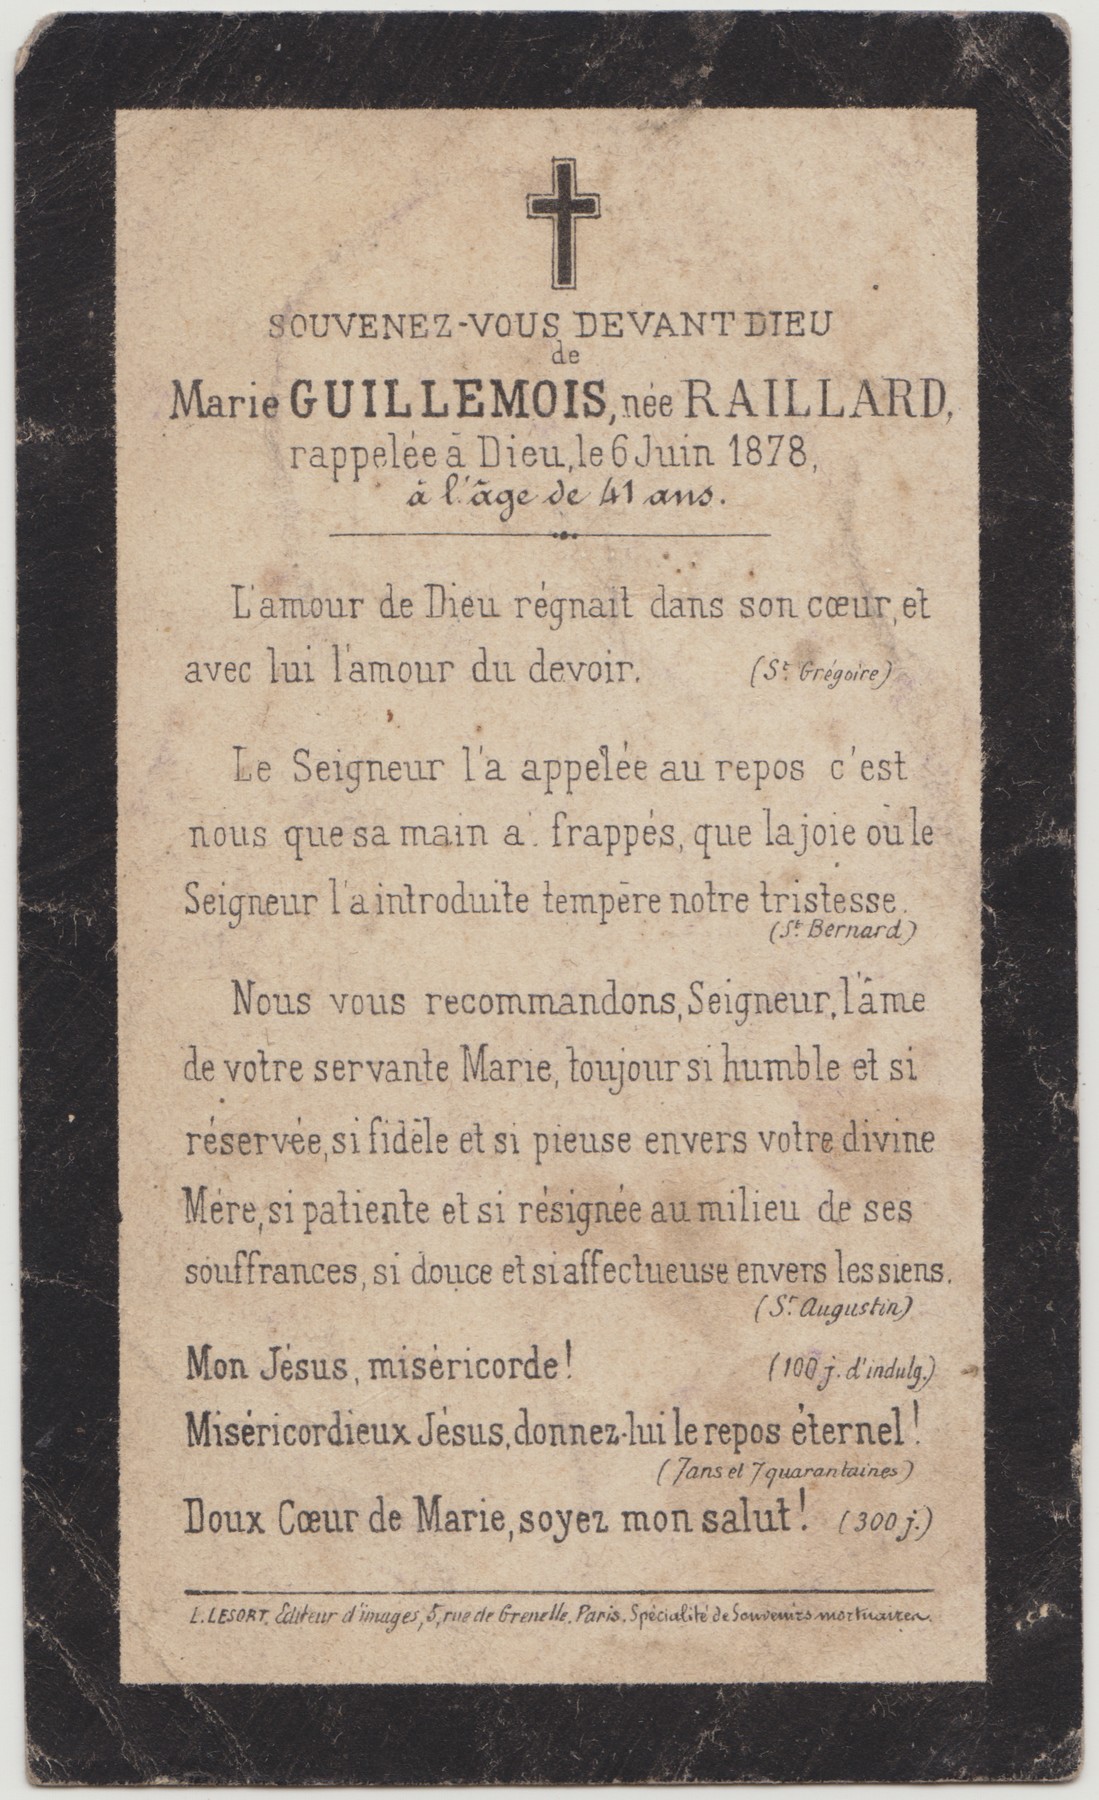 SOUVENEZ-VOUS DEVANT DIEU
de
Marie GUILLEMOIS, née RAILLARD,
rappelée à Dieu, le 6 Juin 1878,
à l'âge de 41 ans.
L'amour de Dieu régnait dans son cœur, et
avec lui l'amour du devoir. (St Grégoire)
Le Seigneur l'a appelée au repos c'est
nous que sa main a frappés, que la joie où le
Seigneur l'a introduite tempère notre tristesse.
(St Bernard)
Nous vous recommandons, Seigneur, l'âme
de votre servante Marie, toujour si humble et si
réservée, si fidèle et si pieuse envers votre divine
Mère, si patiente et si résignée au milieu de ses
souffrances, si douce et si affectueuse envers les siens.
(St Augustin)
Mon Jésus, miséricorde! (100 j. d'indulg.)
Miséricordieux Jésus, donnez-lui le repos éternel!
(7 ans et 7 quarantaines)
Doux Cœur de Marie, soyez mon salut! (300 j.)
L. LESORT, Editeur d'images, 5, rue de Grenelle, Paris. Spécialité de Souvenirs mortuaires.